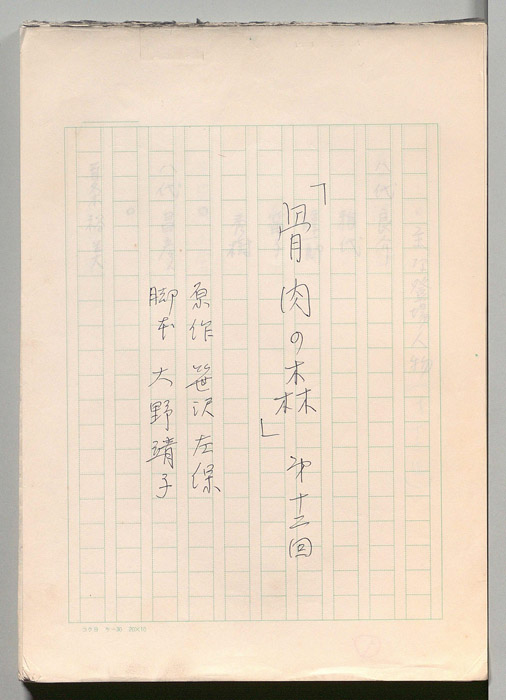 「骨肉の森」 第十二回
原作 笹沢左保
脚本 大野靖子